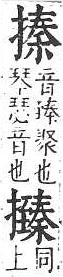 搸
音臻聚也
琴瑟音也
同
上